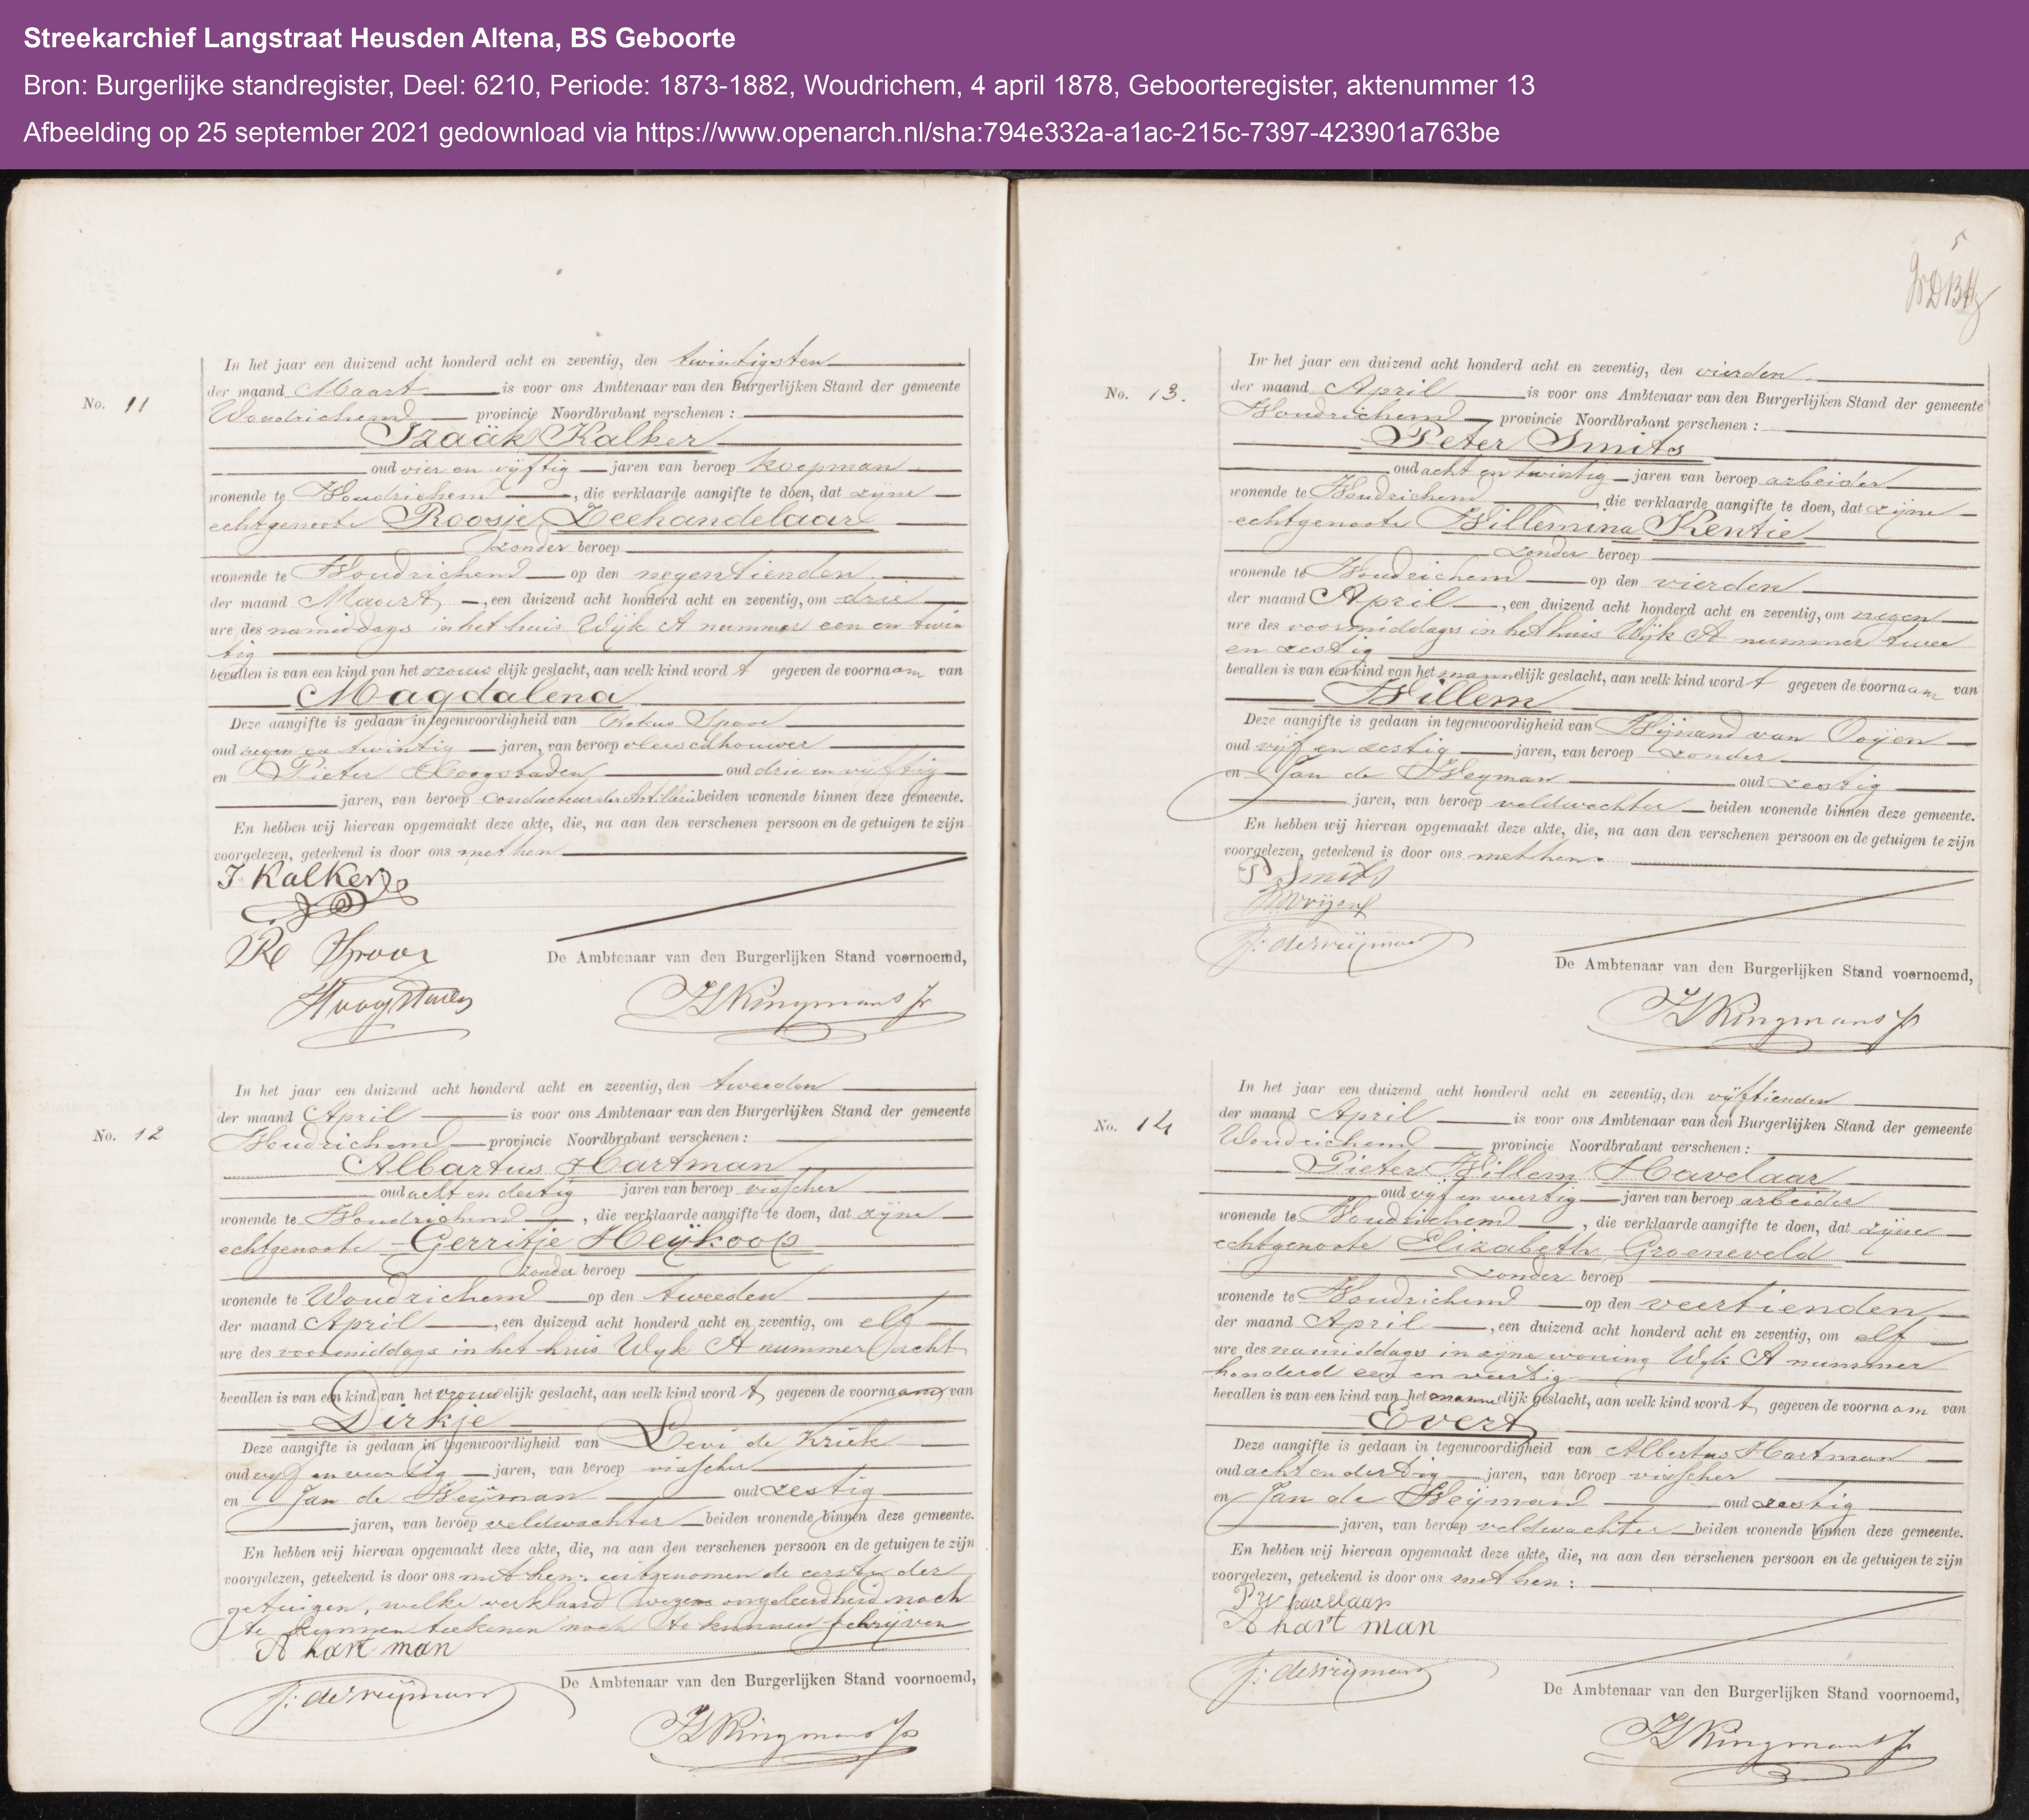 Streekarchief Langstraat Heusden Altena, BS Geboorte
Bron: Burgerlijke standregister, Deel: 6210, Periode: 1873-1882, Woudrichem, 4 april 1878, Geboorteregister, aktenummer 13
Afbeelding op 25 september 2021 gedownload via https://www.openarch.nl/sha:794e332a-a1ac-215c-7397-423901a763be
No. 11
In het jaar een duizend acht honderd acht en zeventig, den twintigsten
der maand Maart is voor ons Ambtenaar van den Burgerlijken Stand der gemeente
Woudrichem provincie Noordbrabant verschenen :
Izaäk Kalker
oud vier en vijftig jaren van beroep koopman
wonende te Woudrichem , die verklaarde aangifte te doen, dat zijne
echtgenoote Roosje Zeehandelaar
zonder beroep
wonende te Woudrichem op den negentienden
der maand Maart , een duizend acht honderd acht en zeventig, om drie
ure des namiddags in het huis Wijk A nummer een en twin
tig
bevallen is van een kind van het vrouwelijk geslacht, aan welk kind wordt gegeven de voornaam van
Magdalena
Deze aangifte is gedaan in tegenwoordigheid van Rokus Spoor
oud negen en twintig jaren, van beroep vleeschhouwer
en Pieter Hoogstaden oud drie en vijftig
jaren, van beroep Conducteur der Artillerie beiden wonende binnen deze gemeente.
En hebben wij hiervan opgemaakt deze akte, die, na aan den verschenen persoon en de getuigen te zijn
voorgelezen, geteekend is door ons met hen
I Kalker
R Spoor
De Ambtenaar van den Burgerlijken Stand voornoemd,
Hoogstaden
Kingmans Jr
No. 12
In het jaar een duizend acht honderd acht en zeventig, den tweeden
der maand April is voor ons Ambtenaar van den Burgerlijken Stand der gemeente
Woudrichem provincie Noordbrabant verschenen :
Albartus Hartman
oud acht en dertig jaren van beroep visscher
wonende te Woudrichem , die verklaarde aangifte te doen, dat zijne
echtgenoote Gerritje Heijkoop
zonder beroep
wonende te Woudrichem op den tweeden
der maand April , een duizend acht honderd acht en zeventig, om elf
ure des voormiddags in het huis Wijk A nummer acht
bevallen is van een kind van het vrouwelijk geslacht, aan welk kind wordt gegeven de voornaam van
Dirkje
Deze aangifte is gedaan in tegenwoordigheid van Levi de Kriek
oud vijf en veertig jaren, van beroep visscher
en Jan de Weijman oud zestig
jaren, van beroep veldwachter beiden wonende binnen deze gemeente.
En hebben wij hiervan opgemaakt deze akte, die, na aan den verschenen persoon en de getuigen te zijn
voorgelezen, geteekend is door ons met hen: uitgenomen de eerste der
getuigen, welke verklaard wegens ongeleerdheid noch
te kunnen teekenen noch te kunnen schrijven
A hart man
De Ambtenaar van den Burgerlijken Stand voornoemd,
J: de weijman
Kingmans Jr
5
No. 13.
In het jaar een duizend acht honderd acht en zeventig, den vierden
der maand April is voor ons Ambtenaar van den Burgerlijken Stand der gemeente
Woudrichem provincie Noordbrabant verschenen :
Peter Smits
oud acht en twintig jaren van beroep arbeider
wonende te Woudrichem , die verklaarde aangifte te doen, dat zijne
echtgenoote Willemina Kentie
zonder beroep
wonende te Woudrichem op den vierden
der maand April , een duizend acht honderd acht en zeventig, om negen
ure des voormiddags in het huis Wijk A nummer twee
en zestig
bevallen is van een kind van het mannelijk geslacht, aan welk kind wordt gegeven de voornaam van
Willem
Deze aangifte is gedaan in tegenwoordigheid van Wijnand van Ooijen
oud vijf en zestig jaren, van beroep zonder
en Jan de Weyman oud zestig
jaren, van beroep veldwachter beiden wonende binnen deze gemeente.
En hebben wij hiervan opgemaakt deze akte, die, na aan den verschenen persoon en de getuigen te zijn
voorgelezen, geteekend is door ons met hen.
P Smits
J: de weijman
De Ambtenaar van den Burgerlijken Stand voornoemd,
Kingmans Jr
No. 14
In het jaar een duizend acht honderd acht en zeventig, den vijftienden
der maand April is voor ons Ambtenaar van den Burgerlijken Stand der gemeente
Woudrichem provincie Noordbrabant verschenen :
Pieter Willem Havelaar
oud vijf en veertig jaren van beroep arbeider
wonende te Woudrichem , die verklaarde aangifte te doen, dat zijne
echtgenoote Elizabeth Groeneveld
zonder beroep
wonende te Woudrichem op den veertienden
der maand April , een duizend acht honderd acht en zeventig, om elf
ure des namiddags in zijne woning Wijk A nummer
honderd een en veertig
bevallen is van een kind van het mannelijk geslacht, aan welk kind wordt gegeven de voornaam van
Evert
Deze aangifte is gedaan in tegenwoordigheid van Albertus Hartman
oud acht en dertig jaren, van beroep visscher
en Jan de Weijman oud zestig
jaren, van beroep veldwachter beiden wonende binnen deze gemeente.
En hebben wij hiervan opgemaakt deze akte, die, na aan den verschenen persoon en de getuigen te zijn
voorgelezen, geteekend is door ons met hen:
P W havelaar
A hart man
J: de weijman
De Ambtenaar van den Burgerlijken Stand voornoemd,
Kingmans Jr